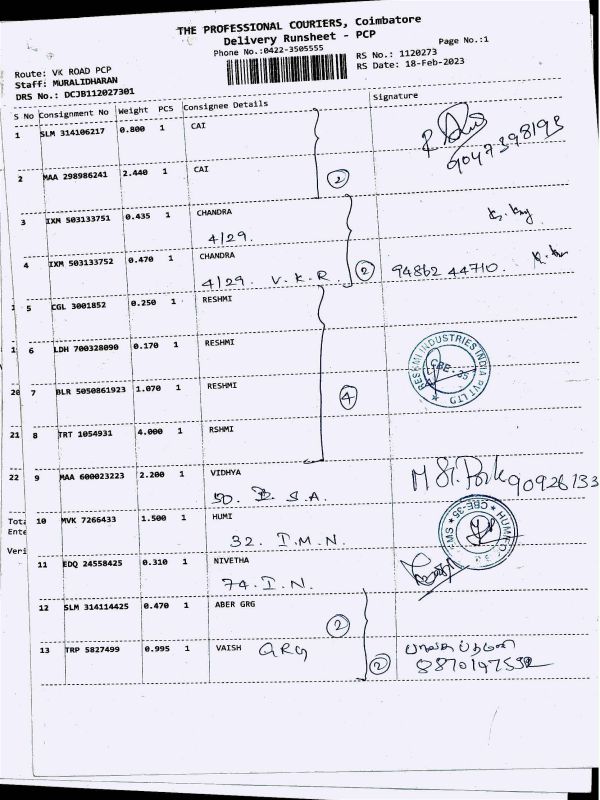 THE PROFESSIONAL COURIERS, Coimbatore
Delivery Runsheet - PCP
Phone No.:0422-3505555
Page No.:1
Route: VK ROAD PCP
RS No.: 1120273
Staff: MURALIDHARAN
RS Date: 18-Feb-2023
DRS No.: DCJB112027301
S No Consignment No Weight PCS Consignee Details Signature
1 SLM 314106217 0.800 1 CAI
9047398193
2 MAA 298986241 2.440 1 CAI
2
3 IXM 503133751 0.435 1 CHANDRA
4/29.
4 IXM 503133752 0.470 1 CHANDRA
4/29. V.K.R 2 94862 44710.
5 CGL 3001852 0.250 1 RESHMI
6 LDH 700328090 0.170 1 RESHMI
RESHMI INDUSTRIES INDIA PVT LTD
CBE-35
20 7 BLR 5050861923 1.070 1 RESHMI
4
21 8 TRT 1054931 4.000 1 RSHMI
22 9 MAA 600023223 2.200 1 VIDHYA
50. B. S.A.
90926133
10 MVK 7266433 1.500 1 HUMI
32. I.M.N.
CBE-35
Tota
Ente
Veri
11 EDQ 24558425 0.310 1 NIVETHA
74. I. N.
12 SLM 314114425 0.470 1 ABER GRG
2
13 TRP 5827499 0.995 1 VAISH GRG
2
8870197532